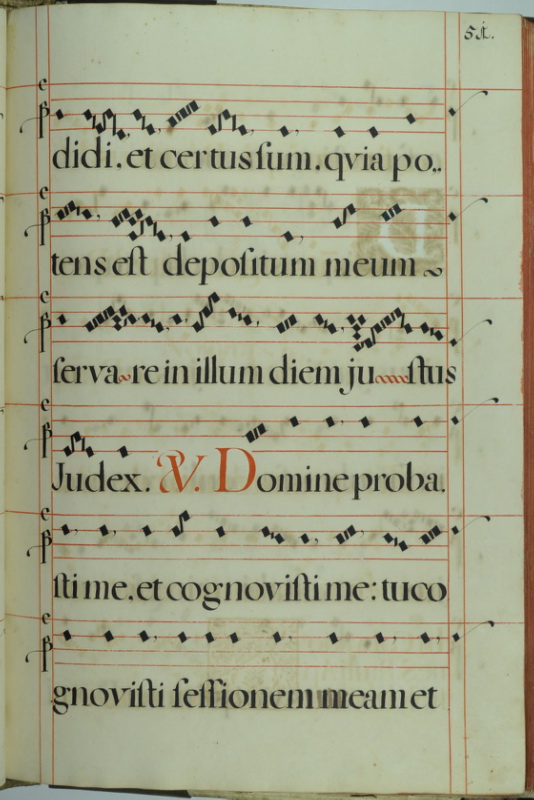 51.
didi. et certus ſum. qvia po..
tens eſt depoſitum meum
ſerva re in illum diem ju ſtus
Judex. V. Domine proba.
ſti me. et cognoviſti me: tu co
gnoviſti ſeſſionem meam et